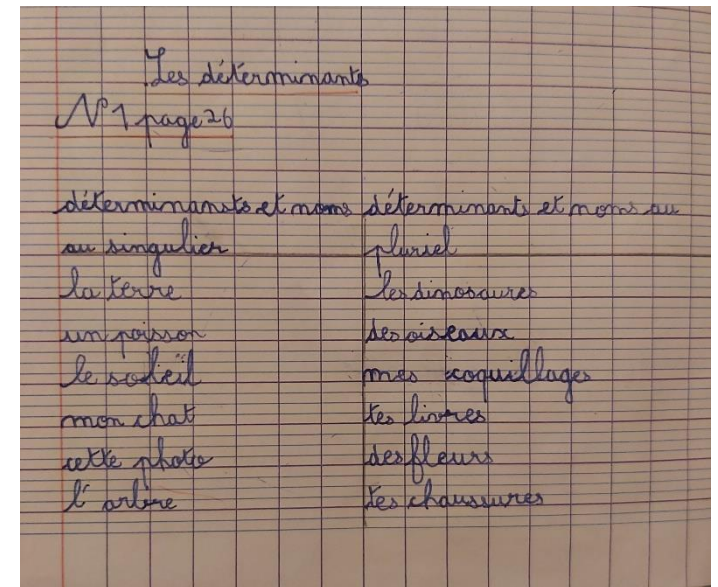 Les déterminants
N°1 page 26
déterminanats et noms déterminants et noms au
au singulier pluriel
la terre les dinosaures
un poisson des oiseaux
le soleil mes coquillages
mon chat tes livres
cette photo des fleurs
l'arbre tes chaussures